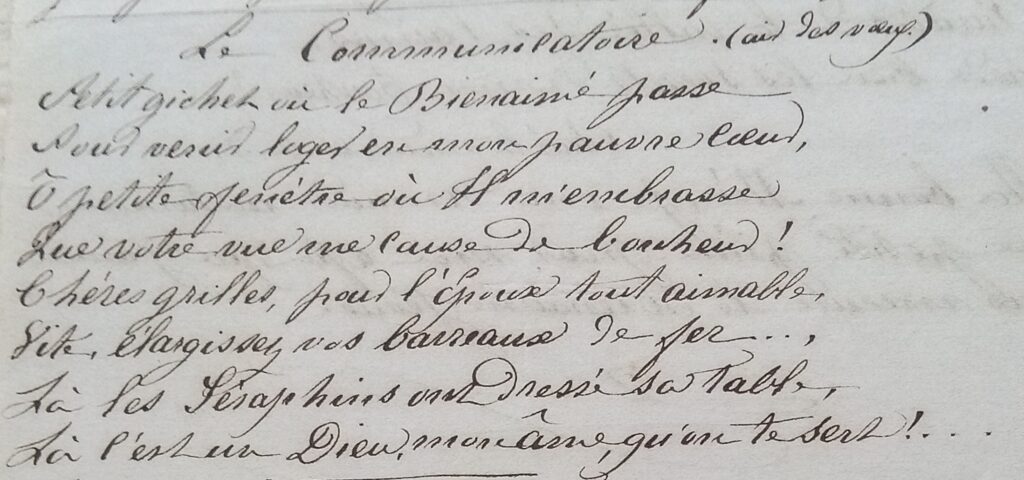 Le Communicatoire. (air des vœux.)
Petit gichet où le Bienaimé passe
Pour venir loger en mon pauvre cœur,
Ô petite fenêtre où Il m'embrasse
Que votre vue me cause de bonheur !
Chéres grilles, pour l'Époux tout aimable,
Vite, élargissez vos barreaux de fer...,
Là les Séraphins ont dressé sa table,
Là c'est un Dieu, mon âme, qu'on te sert !....